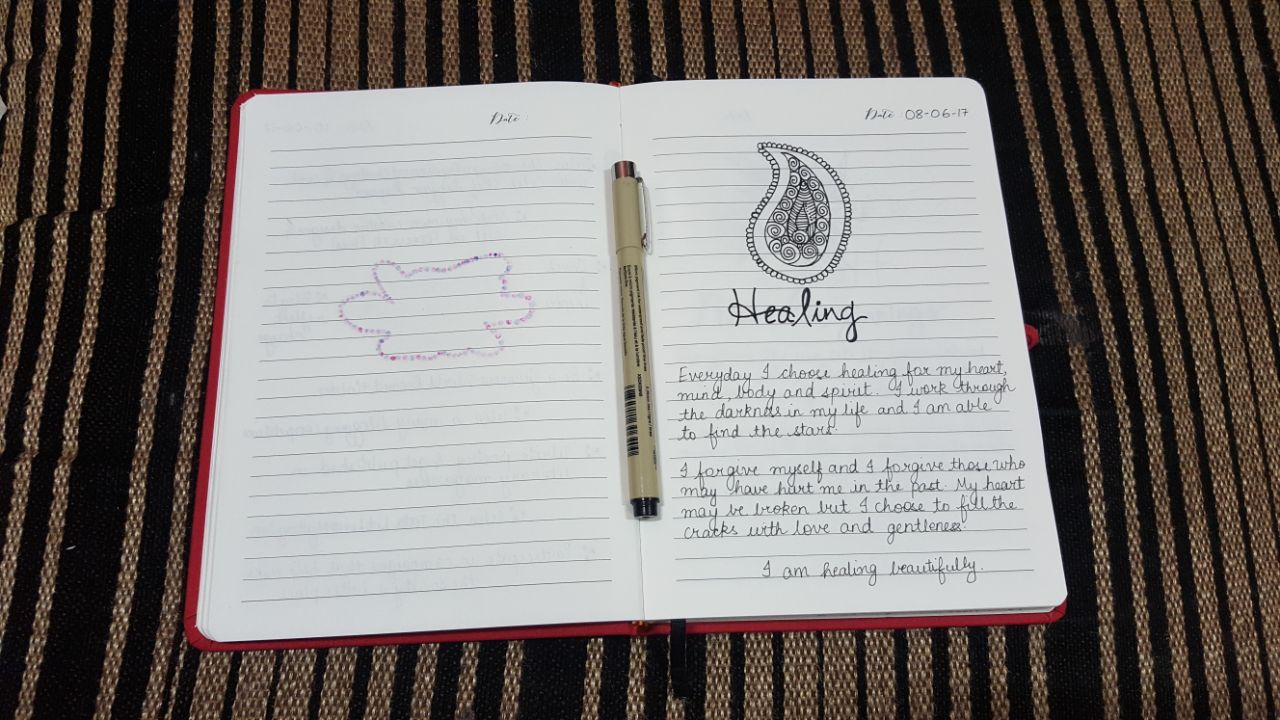 Date :
Date : 08-06-17
Healing
Everyday I choose healing for my heart,
mind, body and spirit. I work through
the darkness in my life and I am able
to find the stars.
I forgive myself and I forgive those who
may have hurt me in the past. My heart
may be broken but I choose to fill the
cracks with love and gentleness.
I am healing beautifully.